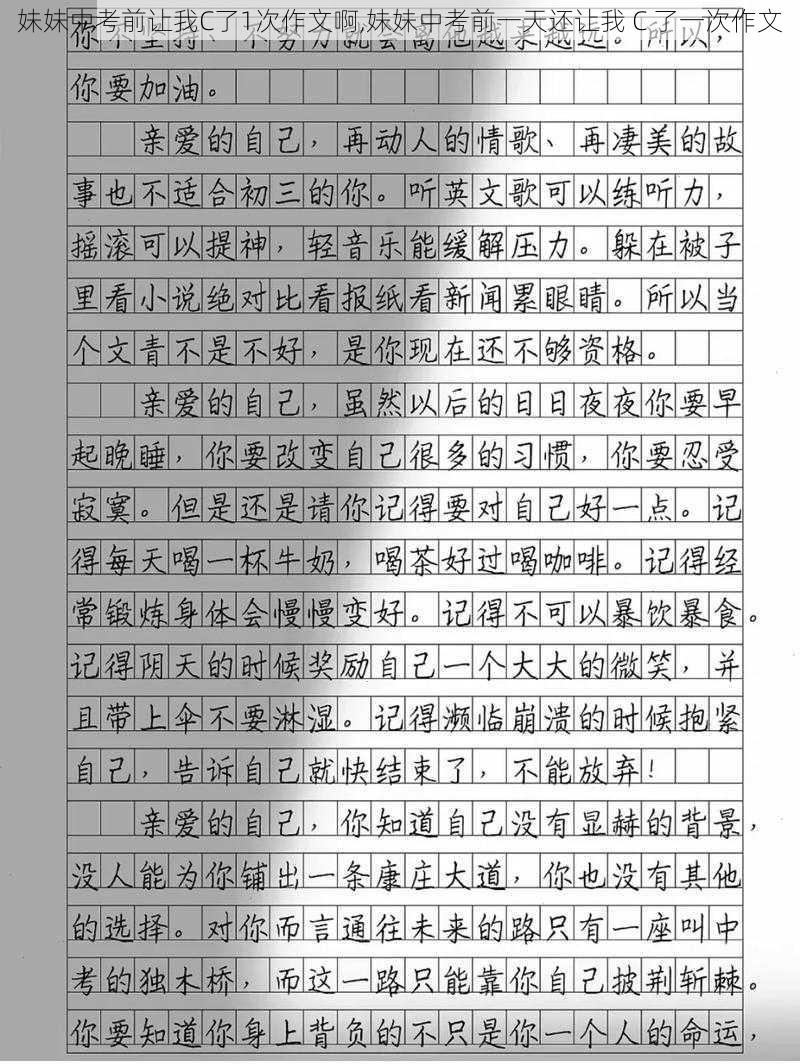 妹妹中考前让我C了1次作文啊,妹妹中考前一天还让我 C 了一次作文
你不坚持、不努力就会离他越来越远。所以，
你要加油。
亲爱的自己，再动人的情歌、再凄美的故
事也不适合初三的你。听英文歌可以练听力，
摇滚可以提神，轻音乐能缓解压力。躲在被子
里看小说绝对比看报纸看新闻累眼睛。所以当
个文青不是不好，是你现在还不够资格。
亲爱的自己，虽然以后的日日夜夜你要早
起晚睡，你要改变自己很多的习惯，你要忍受
寂寞。但是还是请你记得要对自己好一点。记
得每天喝一杯牛奶，喝茶好过喝咖啡。记得经
常锻炼身体会慢慢变好。记得不可以暴饮暴食。
记得阴天的时候奖励自己一个大大的微笑，并
且带上伞不要淋湿。记得濒临崩溃的时候抱紧
自己，告诉自己就快结束了，不能放弃！
亲爱的自己，你知道自己没有显赫的背景，
没人能为你铺出一条康庄大道，你也没有其他
的选择。对你而言通往未来的路只有一座叫中
考的独木桥，而这一路只能靠你自己披荆斩棘。
你要知道你身上背负的不只是你一个人的命运，